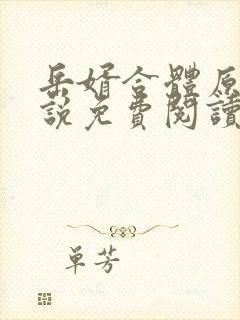 岳婿合體原
說免費閱讀
單芳